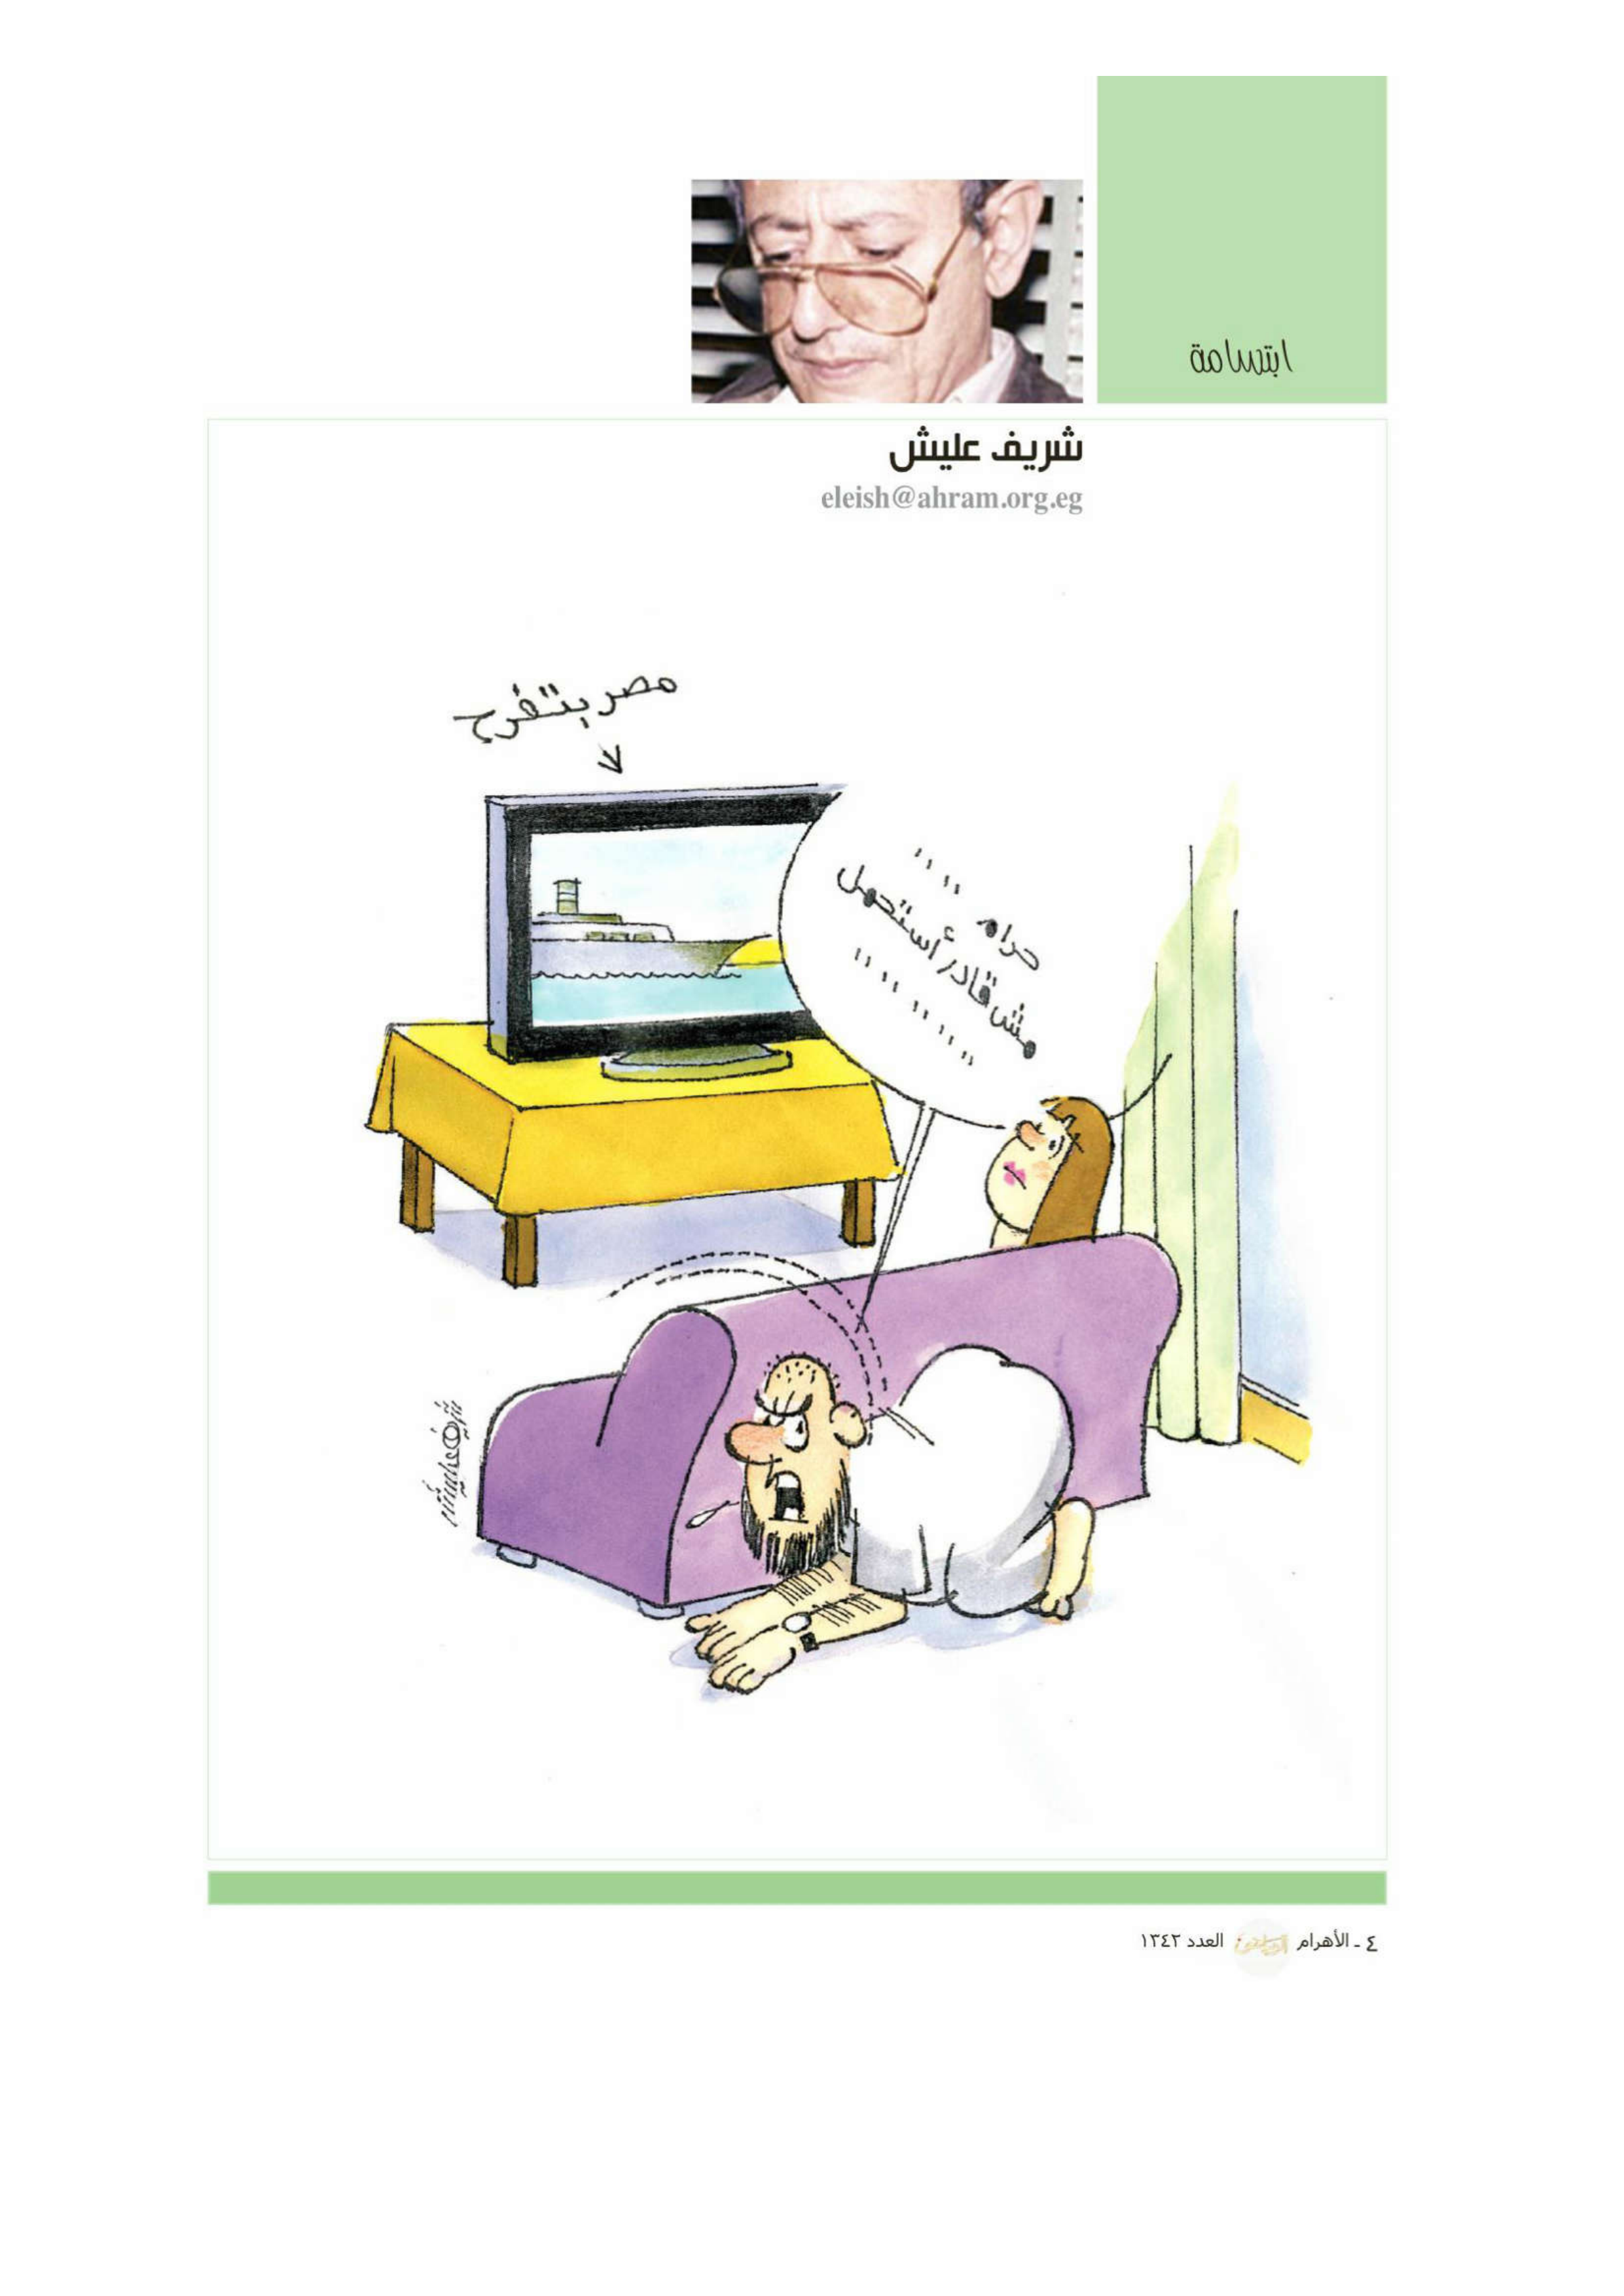 ابتسامة
شريف عليش
eleish@ahram.org.eg
مصر بتفرح
حرام
مش قادر أستحمل
شريف عليش
٤ ـ الأهرام الرياضى العدد ١٣٤٢